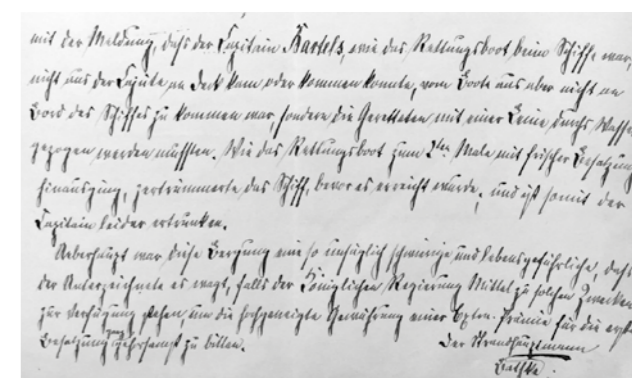 mit der Meldung, daß der Capitain Bartels, wie das Rettungsboot beim Schiffe war,
nicht aus der Cajüte an Deck kam oder kommen konnte, vom Boote aus aber nicht an
Bord des Schiffes zu kommen war, sondern die Geretteten mit einer Leine durchs Wasser
gezogen werden mußten. Wie das Rettungsboot zum 2ten Male mit frischer Besatzung
hinausging, zertrümmerte das Schiff, bevor es erreicht wurde, und ist somit der
Capitain leider ertrunken.
Ueberhaupt war diese Bergung eine so unsäglich schwierige und lebensgefährliche, daß
der Unterzeichnete es wagt, falls der Königlichen Regierung Mittel zu solchen Zwecken
zur Verfügung stehen, um die hochgeneigte Gewährung einer Extra-Prämie für die erste
Besatzung ganz gehorsamst zu bitten.
Der Strandhauptmann